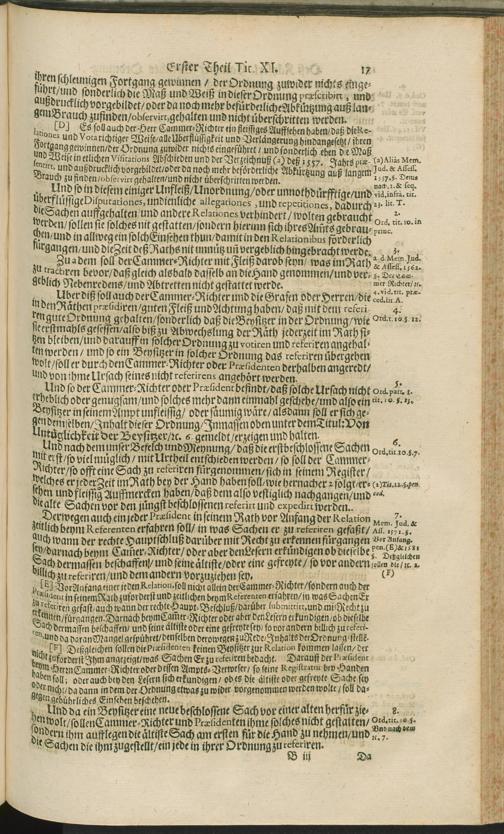 Erster Theil Tit. XI. 17
ihren schleunigen Fortgang gewinnen / der Ordnung zuwider nichts einge-
führt / und sonderlich die Maß und Weiß in dieser Ordnung præscribirt, und
außdrucklich vorgebildet / oder da noch mehr befürderliche Abkützung auß lan-
gem Brauch zufinden / observirt, gehalten und nicht überschritten werden.
[D] Es soll auch der Herr Cammer-Richter ein fleissiges Auffsehen haben / daß die Re-
lationes und Vota richtiger Weise / alle Uberflüssigkeit und Verlängerung hindangesetzt / ihren
Fortgang gewinnen / der Ordnung zuwider nichts eingeführet / und sonderlich eben die Maß
und Weise in etlichen Visitations Abschieden und der Verzeichnuß (a) deß 1557. Jahrs præ-
scribirt, und außdrücklich vorgebildet / oder da noch mehr beförderliche Abkützung auß langem
Brauch zu finden / observirt gehalten / und nicht überschritten werden.
(a) Aliàs Mem.
Jud. & Assess.
1557. §. Denn
nach. 1. & seq.
vid. infra. tit.
13. lit. T.
Und so in diesem einiger Unfleiß / Unordnung / oder unnothdürfftige / und
überflüssige Disputationes, undienliche allegationes, und repetitiones, dadurch
die Sachen auffgehalten und andere Relationes verhindert / wolten gebraucht
werden / sollen sie solches nit gestatten / sondern hierinn sich ihres Ampts gebrau-
chen / und in allweg ein solch Einsehen thun / damit in den Relationibus förderlich
fürgangen / und die Zeit deß Raths nit unnütz uñ vergeblich hingebracht werde.
2.
Ord. tit. 10. in
princ.
Zu a dem soll der Cammer-Richter mit Fleiß darob seyn / was im Rath
zu tractiren bevor / daß gleich alsbald dasselb an die Hand genommen / und ver-
geblich Nebenredens / und Abtretten nicht gestattet werde.
3.
a d. Mem. Jud.
& Assess. 1562.
§. Der Cam-
mer Richter /
4. vid. tit. præ-
ced. lit A.
Uber diß soll auch der Cammer-Richter und die Grafen oder Herren / die
in den Räthen præsidiren / guten Fleiß und Achtung haben / daß mit dem referi-
ren gute Ordnung gehalten / sonderlich daß die Beysitzer in der Ordnung / wie
sie erstmahls gesessen / also biß zu Abwechslung der Räth jederzeit im Rath si-
tzen bleiben / und darauff in solcher Ordnung zu votiren und referiren angehal-
ten werden / und so ein Beysitzer in solcher Ordnung das referiren übergehen
wolt / soll er durch den Cammer-Richter oder Præsidenten derhalben angeredt /
und von ihme Ursach seines nicht referirens angehört werden.
4.
Ord. t. 10. §. 12.
Und so der Cammer-Richter oder Præsident befindt / daß solche Ursach nicht
erheblich oder genugsam / und solches mehr dann einmahl geschehe / und also ein
Beysitzer in seinem Ampt unfleissig / oder säumig wäre / alsdann soll er sich ge-
gen demselben / Inhalt dieser Ordnung / Inmassen oben unter dem Titul: Von
Untüglichkeit der Beysitzer / rc. 6. gemeldt / erzeigen und halten.
5.
Ord. part. 1.
tit. 10. §. 13.
Und nach dem unser Befelch und Meynung / daß die erstbeschlossene Sachen
mit erst / so viel müglich / mit Urtheil entschieden werden / so soll der Cammer-
Richter / so offt eine Sach zu referiren fürgenommen / sich in seinem Register /
welches er jederzeit im Rath bey der Hand haben soll / wie hernacher a folgt / er-
sehen und fleissig Auffmercken haben / daß dem also vestiglich nachgangen / und
die alte Sachen vor den jüngst beschlossenen referirt und expedirt werden.
6.
Ord. tit. 10 §. 7.
(a) Tit. 12. §. pen
cod.
Derwegen auch ein jeder Præsident in seinem Rath vor Anfang der Relation
zeitlich beym Referenten erfahren soll / in was Sachen er zu referiren gefaßt /
auch wann der rechte Hauptschluß darüber mit Recht zu erkennen fürgangen
sey / darnach beym Cam̃er-Richter / oder aber den Lesern erkündigen ob dieselbe
Sach dermassen beschaffen / und seine ältiste / oder eine gefreyte / so vor andern
billich zu referiren / und dem andern vorzuziehen sey.
7.
Mem. Jud. &
Ass. 1571. §.
Vor Anfang.
pen. (E) & 1581
§. Deßgleichen
sollen die / n. 2.
(F)
[E] Vor Anfang einer jeden Relation, soll nicht allein der Cammer-Richter / sondern auch der
Præsident in seinem Rath zuforderst und zeitlichen beym Referenten erfahren / in was Sachen Er
zu referiren gefast / auch wann der rechte Haupt-Beschluß / darüber submittirt, und mit Recht zu
erkennen / fürgangen. Darnach beym Cam̃er-Richter oder aber den Lesern erkundigen / ob dieselbe
Sach dermassen beschaffen / und seine älteste oder eine gefreyte sey / so vor andern billich zu referi-
ren, und da daran Mangel gespühret / denselben derowegen zu Rede / Inhalts der Ordnung / stelle.
[F] Deßgleichen sollen die Præsidenten keinen Beysitzer zur Relation kommen lassen / der
nicht zuforderst Ihm angezeigt / was Sachen Er zu referiren bedacht. Darauff der Præsident
beym Herrn Cammer-Richter oder dessen Ampts-Verweser / so seine Registratur bey Handen
haben soll; oder auch bey den Lesern sich erkundigen / ob es die älteste oder gefreyte Sache sey
oder nicht / da dann in dem der Ordnung etwas zu wider vorgenommen werden wolte / soll da-
gegen gebührliches Einsehen beschehen.
Und da ein Beysitzer eine neue beschlossene Sach vor einer alten herfür zie-
hen wolt / sollen Cammer-Richter und Præsidenten ihme solches nicht gestatten /
sondern ihm aufflegen die ältiste Sach am ersten für die Hand zu nehmen / und
die Sachen die ihm zugestellt / ein jede in ihrer Ordnung zu referiren.
8.
Ord. tit. 10 §.
Und nach dem
n. 7.
B iij Da